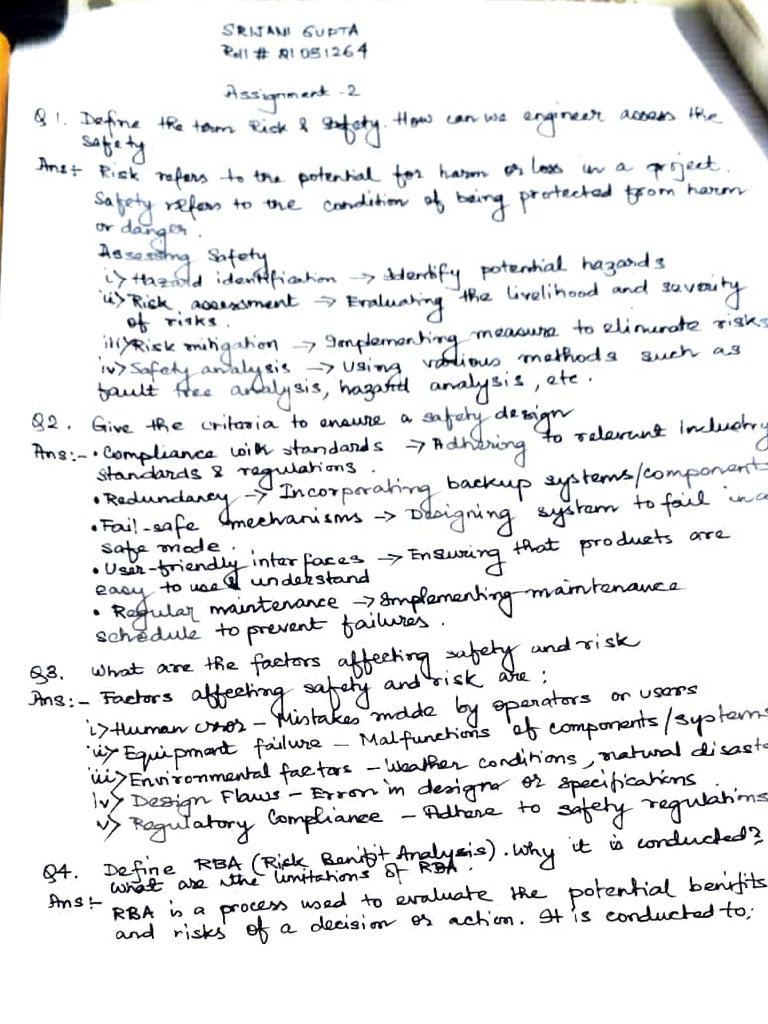 SRIJANI GUPTA
Roll # 21051264
Assignment -2
Q1. Define the term Risk & Safety. How can we engineer assess the
Safety
Ans:- Risk refers to the potential for harm or loss in a project.
Safety refers to the condition of being protected from harm
or danger.
Assessing Safety
i) Hazard identification → Identify potential hazards
ii) Risk assessment → Evaluating the livelihood and severity
of risks.
iii) Risk mitigation → Implementing measure to eliminate risks
iv) Safety analysis → Using various methods such as
fault tree analysis, hazard analysis, etc.
Q2. Give the criteria to ensure a safety design
Ans:- • Compliance with standards → Adhering to relevant industry
standards & regulations.
• Redundancy → Incorporating backup systems/component
• Fail-safe mechanisms → Designing system to fail in a
safe mode.
• User-friendly interfaces → Ensuring that products are
easy to use & understand
• Regular maintenance → Implementing maintenance
schedule to prevent failures.
Q3. What are the factors affecting safety and risk
Ans:- Factors affecting safety and risk are:
i) Human error - Mistakes made by operators or users
ii) Equipment failure - Malfunctions of components/systems
iii) Environmental factors - Weather conditions, natural disast
iv) Design Flaws - Errors in designs or specifications
v) Regulatory Compliance - Adhere to safety regulations
Q4. Define RBA (Risk Benifit Analysis). Why it is conducted?
What are the limitations of RBA.
Ans:- RBA is a process used to evaluate the potential benifits
and risks of a decision or action. It is conducted to: